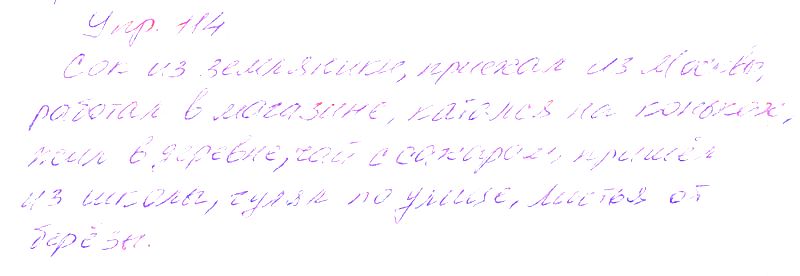 Упр. 114
Сок из земляники, приехал из Москвы,
работал в магазине, катался на коньках,
жил в деревне, чай с сахаром, пришёл
из школы, гулял по улице, листья от
берёзы.